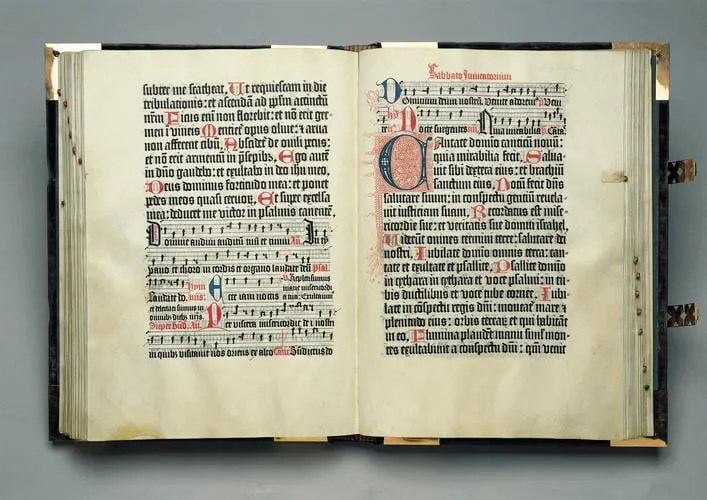 subter me scateat, Ut requiescam in die
tribulationis: et ascendā ad pp̄lm accinctū
nrm̄ Ficus em̄ non florebit: et nō erit ger-
men ī vineis Mentiet̉ opus olive: et arva
non afferent cibū, Abscidet̉ de ovili pecus:
et nō erit armentū in p̄sepib9, Ego aut̄
in dn̄o gaudebo: et exultabo in deo ihu meo,
Deus dominus fortitudo mea: et ponet
pedes meos quasi cervorꝝ, Et super excelsa
mea: deducet me victor in psalmis canentē,
Domine audivi auditū tuū et timui An. In ty
pano et choro in cordis et organo laudate deū psal.
Laudate do. Ymn9. Ecce iam noctis
Super Bn̄d. An. Per viscera misericordie dei nostri
in quib9 visitavit nos oriens ex alto Bn̄dictus do
Sabbato Invitatorium
Dominum deum nostrū, Venite adorem9 p̄s Veni
Nocte surgentes an. Quia mirabilia p̄s Cāta.
Cantate domino canticū novū:
quia mirabilia fecit, Salva-
vit sibi dextera eius: et brachiū
sanctum eius, Notū fecit dn̄s
salutare suum: in conspectu gentiū revela-
vit iusticiam suam, Recordatus est mise-
ricordie sue: et veritatis sue domui israhel,
Viderūt omnes termini terre: salutare dei
nostri, Iubilate domino omnis terra: can-
tate et exultate et psallite, Psallite domino
in cythara in cythara et voce psalmi: in tu-
bis ductilibus et voce tube cornee, Iubi-
late in cōspectu regis dn̄i: moveat̉ mare ⁊
plenitudo eius: orbis terrarꝝ et qui habitāt
in eo, Flumina plaudēt manu simul mon-
tes exultabunt a conspectu dn̄i: qm̄ venit